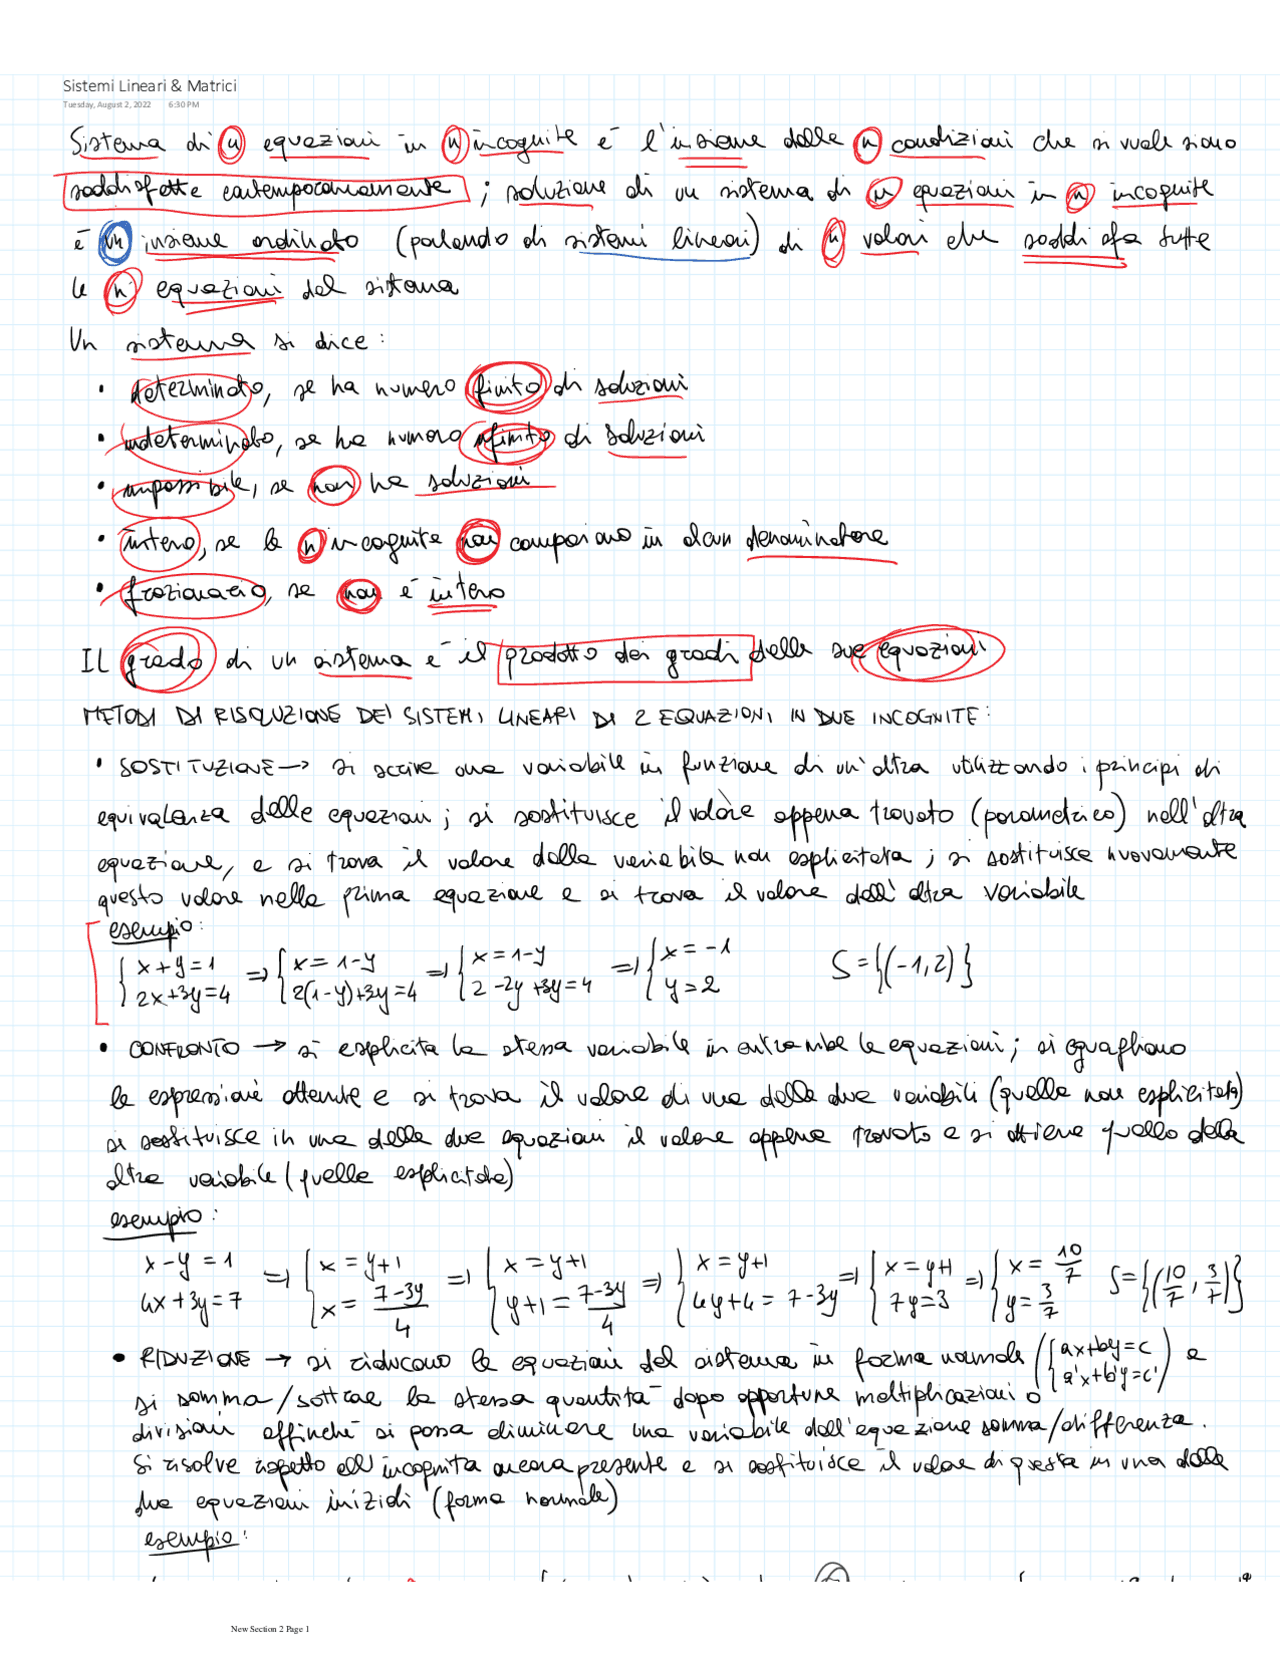 Sistemi Lineari & Matrici
Tuesday, August 2, 2022 6:30 PM
Sistema di n equazioni in n incognite è l'insieme delle n condizioni che si vuole siano
soddisfatte contemporaneamente ; soluzione di un sistema di n equazioni in n incognite
è un insieme ordinato (parlando di sistemi lineari) di n valori che soddisfa tutte
le n equazioni del sistema
Un sistema si dice :
• determinato, se ha numero finito di soluzioni
• indeterminato, se ha numero infinito di soluzioni
• impossibile, se non ha soluzioni
• intero, se le n incognite non compaiono in alcun denominatore
• frazionario, se non è intero
Il grado di un sistema è il prodotto dei gradi delle sue equazioni
METODI DI RISOLUZIONE DEI SISTEMI LINEARI DI 2 EQUAZIONI IN DUE INCOGNITE :
• SOSTITUZIONE → si scrive una variabile in funzione di un'altra utilizzando i principi di
equivalenza delle equazioni ; si sostituisce il valore appena trovato (parametrico) nell'altra
equazione, e si trova il valore della variabile non esplicitata ; si sostituisce nuovamente
questo valore nella prima equazione e si trova il valore dell'altra variabile
esempio :
{ x+y=1 ⇒ { x=1-y ⇒ { x=1-y ⇒ { x=-1 S={(-1,2)}
{ 2x+3y=4 { 2(1-y)+3y=4 { 2-2y+3y=4 { y=2
• CONFRONTO → si esplicita la stessa variabile in entrambe le equazioni ; si eguagliano
le espressioni ottenute e si trova il valore di una delle due variabili (quella non esplicitata)
si sostituisce in una delle due equazioni il valore appena trovato e si ottiene quello della
altra variabile (quella esplicitata)
esempio :
x-y=1 ⇒ { x=y+1 ⇒ { x=y+1 ⇒ { x=y+1 ⇒ { x=y+1 ⇒ { x=10/7 S={(10/7, 3/7)}
4x+3y=7 { x=(7-3y)/4 { y+1=(7-3y)/4 { 4y+4=7-3y { 7y=3 { y=3/7
• RIDUZIONE → si riducono le equazioni del sistema in forma normale ({ ax+by=c { a'x+b'y=c' ) e
si somma/sottrae la stessa quantità dopo opportune moltiplicazioni o
divisioni affinché si possa eliminare una variabile dall'equazione somma/differenza.
Si risolve rispetto all'incognita ancora presente e si sostituisce il valore di questa in una delle
due equazioni iniziali (forma normale)
esempio :
New Section 2 Page 1